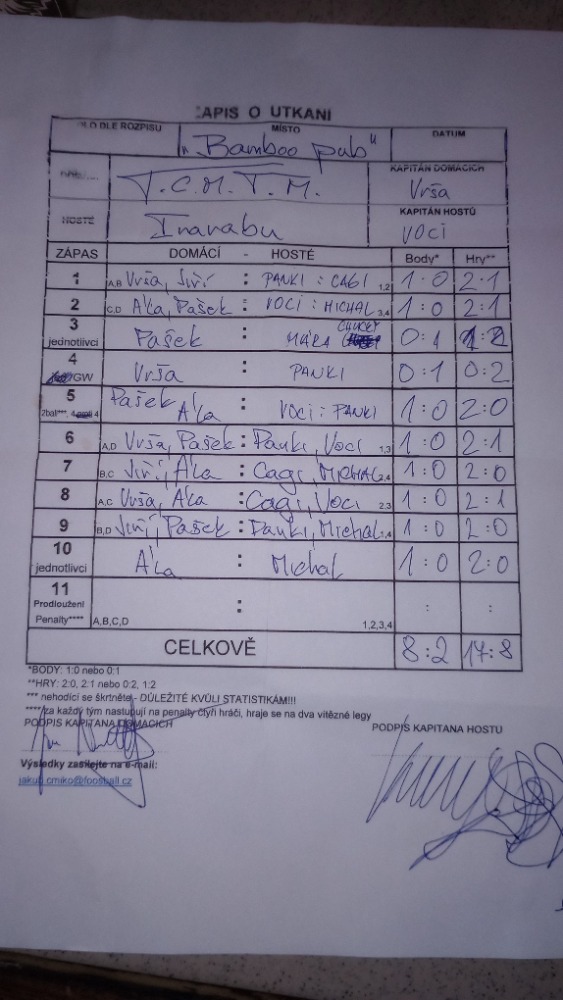 ZÁPIS O UTKÁNÍ
ČÍSLO DLE ROZPISU MÍSTO DATUM
"Bamboo pub"
KAPITÁN DOMÁCÍCH
T.C.M.T.M. Vrša
HOSTÉ KAPITÁN HOSTŮ
Inarabu VOCI
ZÁPAS DOMÁCÍ - HOSTÉ Body* Hry**
1 A,B Vrša, Jiří : PANKI : CAGI 1,2 1:0 2:1
2 C,D Áľa, Pašek : VOCI : MICHAL 3,4 1:0 2:1
3 jednotlivci Pašek : MÁRA CHUCKY 0:1 1:2
4 GW Vrša : PANKI 0:1 0:2
5 2bal***, Pašek Áľa : VOCI : PANKI 1:0 2:0
6 A,D Vrša, Pašek : Panki, Voci 1,3 1:0 2:1
7 B,C Jiří, Áľa : Cagi, MICHAL 2,4 1:0 2:0
8 A,C Vrša, Áľa : Cagi, Voci 2,3 1:0 2:1
9 B,D Jiří, Pašek : Panki, Michal 1,4 1:0 2:0
10 jednotlivci Áľa : Michal 1:0 2:0
11 Prodloužení Penalty**** A,B,C,D : 1,2,3,4 : :
CELKOVĚ 8:2 17:8
*BODY: 1:0 nebo 0:1
**HRY: 2:0, 2:1 nebo 0:2, 1:2
*** nehodící se škrtněte - DŮLEŽITÉ KVŮLI STATISTIKÁM!!!
****/za každý tým nastupují na penalty čtyři hráči, hraje se na dva vítězné legy
PODPIS KAPITÁNA DOMÁCÍCH PODPIS KAPITÁNA HOSTŮ
Výsledky zasílejte na e-mail:
jakub.cmiko@foosball.cz